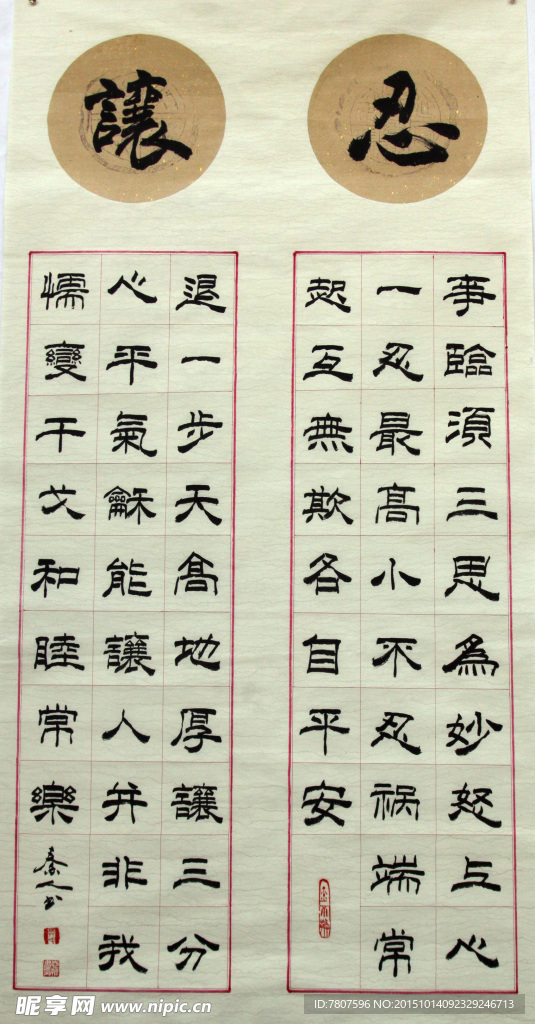 忍
讓
事臨須三思為妙怒上心
一忍最高小不忍祸端常
起互無欺各自平安
退一步天高地厚讓三分
心平氣龢能讓人并非我
懦變干戈和睦常樂
秦人书
昵享网 www.nipic.cn
ID:7807596 NO:20151014092329246713